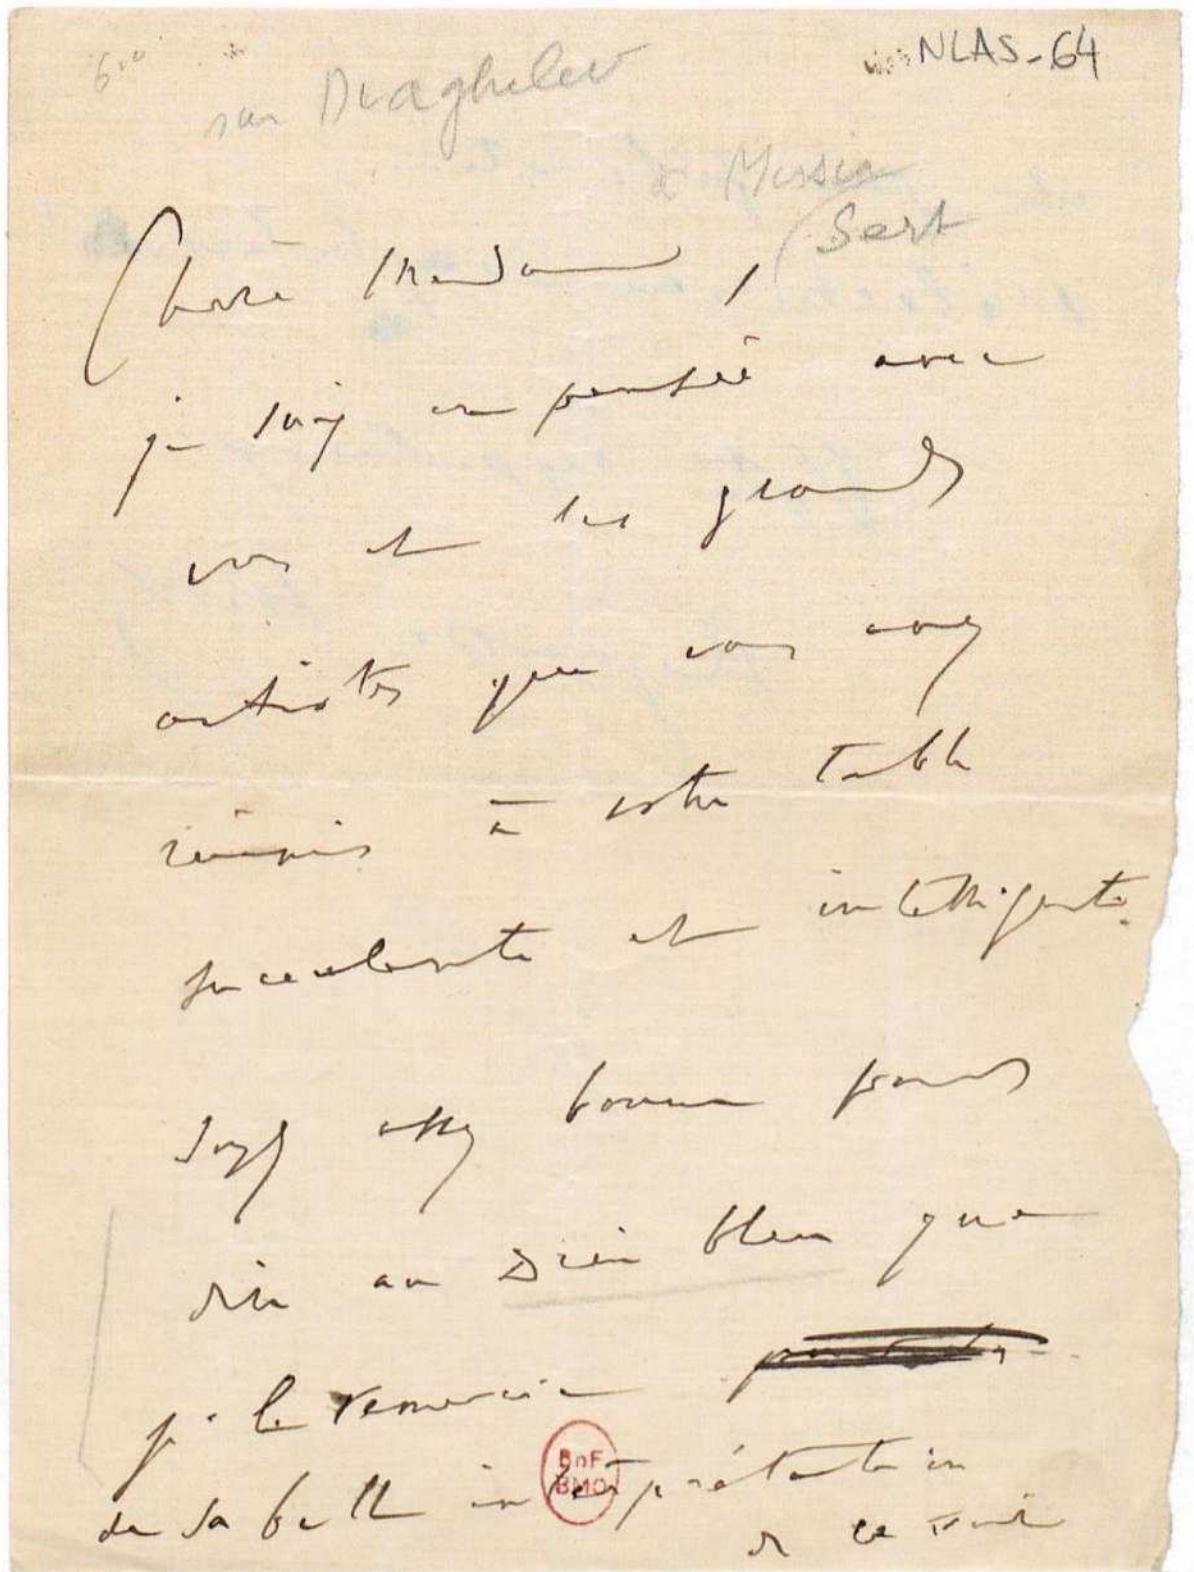 NLAS-64
sur Diaghilev
à Missia
Sert
Chère Madame,
je suis en pensée avec
vous et les grands
artistes que vous avez
réunis à votre table
succulente et intelligente.
Soyez assez bonne pour
dire au Dieu bleu que
je le remercie
BnF
BMO
de sa belle interprétation
de ce soir